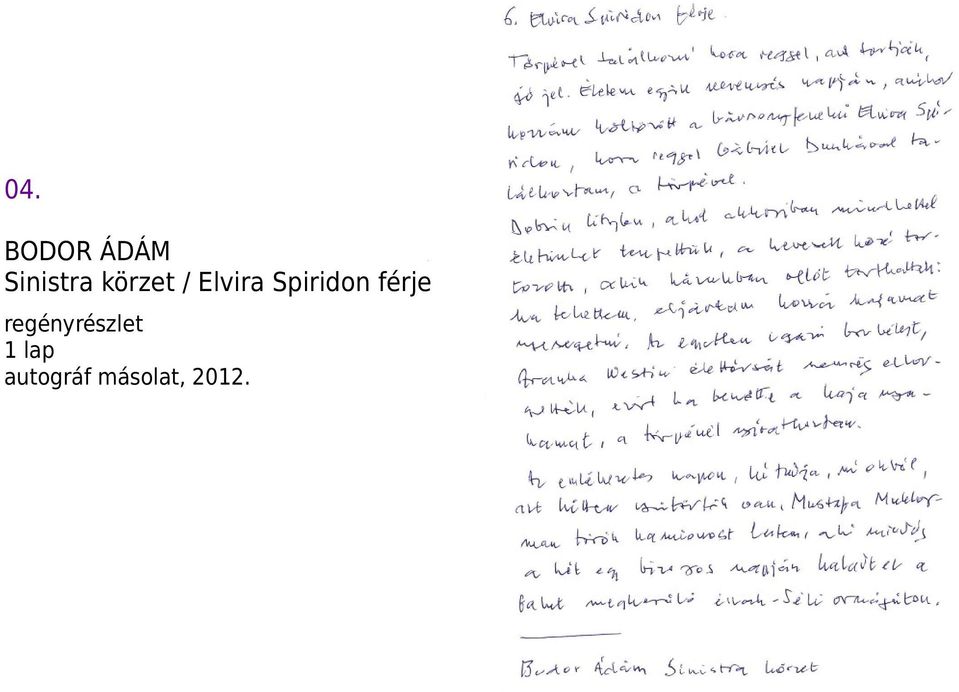 04.
BODOR ÁDÁM
Sinistra körzet / Elvira Spiridon férje
regényrészlet
1 lap
autográf másolat, 2012.
6. Elvira Spiridon férje.
Törpével találkozni kora reggel, azt tartják,
jó jel. Életem egyik nevezetes napján, amikor
hozzám költözött a bársonyfenekű Elvira Spi-
ridon, kora reggel Gábriel Dunkával ta-
lálkoztam, a törpével.
Dobrin Cityben, ahol akkoriban mindketten
életünket tengettük, a kevesek közé tar-
tozott, akik házukban ollót tarthattak:
ha tehettem, eljártam hozzá hajamat
nyesegetni. Az egyetlen igazi borbélyt,
Aranka Westin élettársát nemrég elker-
gették, ezért ha benőtte a haja nya-
kamat, a törpénél nyiratkoztam.
Az emlékezetes napon, ki tudja, mi okból,
azt hittem csütörtök van, Mustafa Mukker-
man török kamionost lestem, aki mindig
a hét egy bizonyos napján haladt el a
falut megkerülő északi országúton.
Bodor Ádám Sinistra körzet